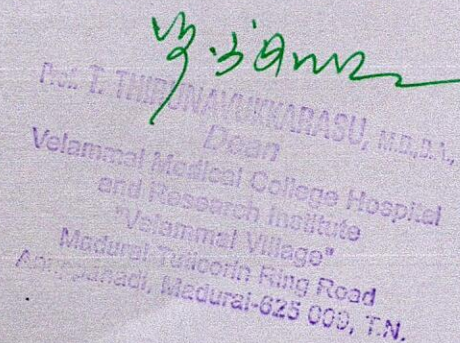 Prof. T. THIRUNAVUKKARASU, M.D.,D.A.,
Dean
Velammal Medical College Hospital
and Research Institute
"Velammal Village"
Madurai Tuticorin Ring Road
Anuppanadi, Madurai-625 009, T.N.